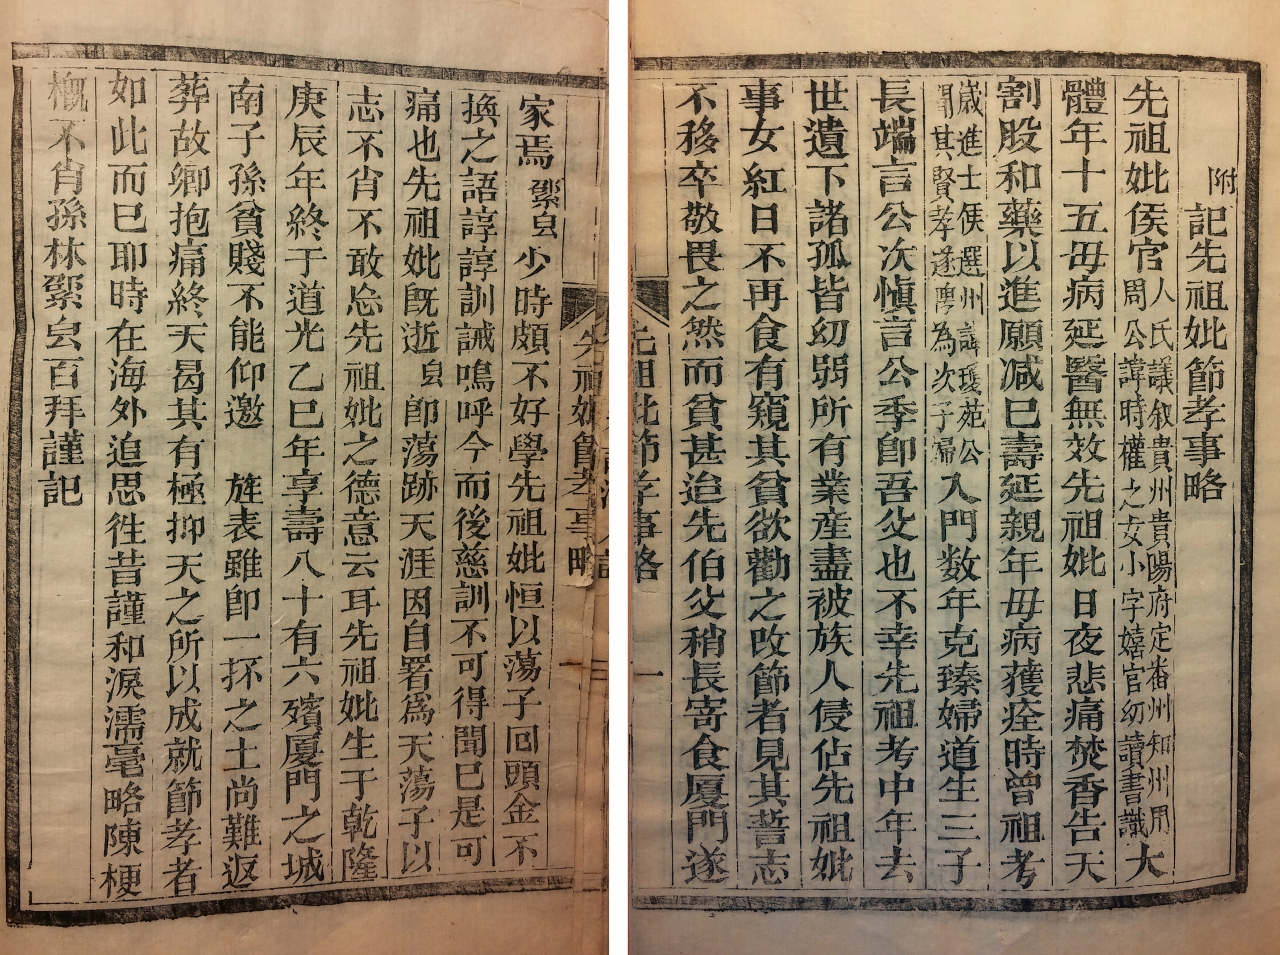 附
記先祖妣節孝事略
先祖妣侯官人氏議叙貴州貴陽府定番州知州用
周公諱時權之女小字嬉官幼讀書識大
體年十五毋病延醫無效先祖妣日夜悲痛焚香告天
割股和藥以進願减巳壽延親年毋病獲痊時曾祖考
歲進士侯選州諱瓊苑公
聞其賢孝遂聘為次子婦入門数年克臻婦道生三子
長端言公次愼言公季卽吾父也不幸先祖考中年去
世遺下諸孤皆幼弱所有業産盡被族人侵佔先祖妣
事女紅日不再食有窺其貧欲勸之改節者見其誓志
不移卒敬畏之然而貧甚迨先伯父稍長寄食厦門遂
先祖妣節孝事略
一
家焉鍼虫少時頗不好學先祖妣恒以蕩子回頭金不
換之語諄諄訓誡嗚呼今而後慈訓不可得聞巳是可
痛也先祖妣旣逝虫卽蕩跡天涯因自署爲天蕩子以
志不肖不敢忘先祖妣之德意云耳先祖妣生于乾隆
庚辰年終于道光乙巳年享壽八十有六殯厦門之城
南子孫貧賤不能仰邀　旌表雖卽一抔之土尚難返
葬故鄉抱痛終天曷其有極抑天之所以成就節孝者
如此而巳耶時在海外追思徃昔謹和淚濡毫略陳梗
概不肖孫林鍼虫百拜謹記